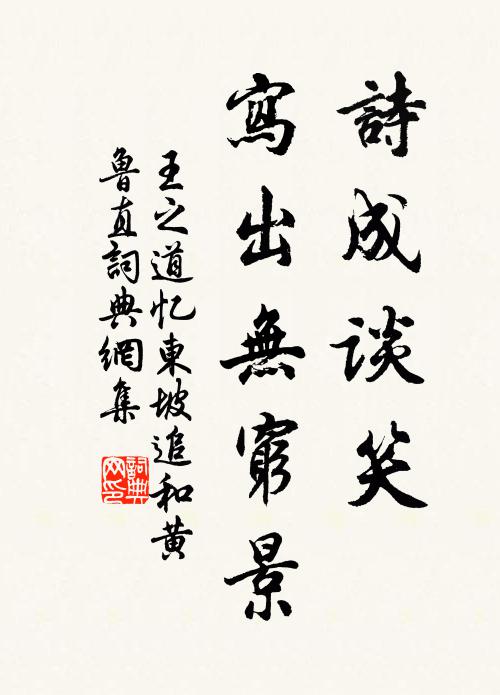 詩成談笑
寫出無窮景
王之道忆東坡追和黄
魯直詞典網集
詞典网印